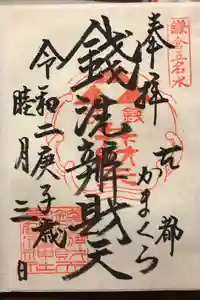 鎌倉五名水
奉拝
古都
かまくら
銭洗辨財天
令和二庚子歳
睦月三日